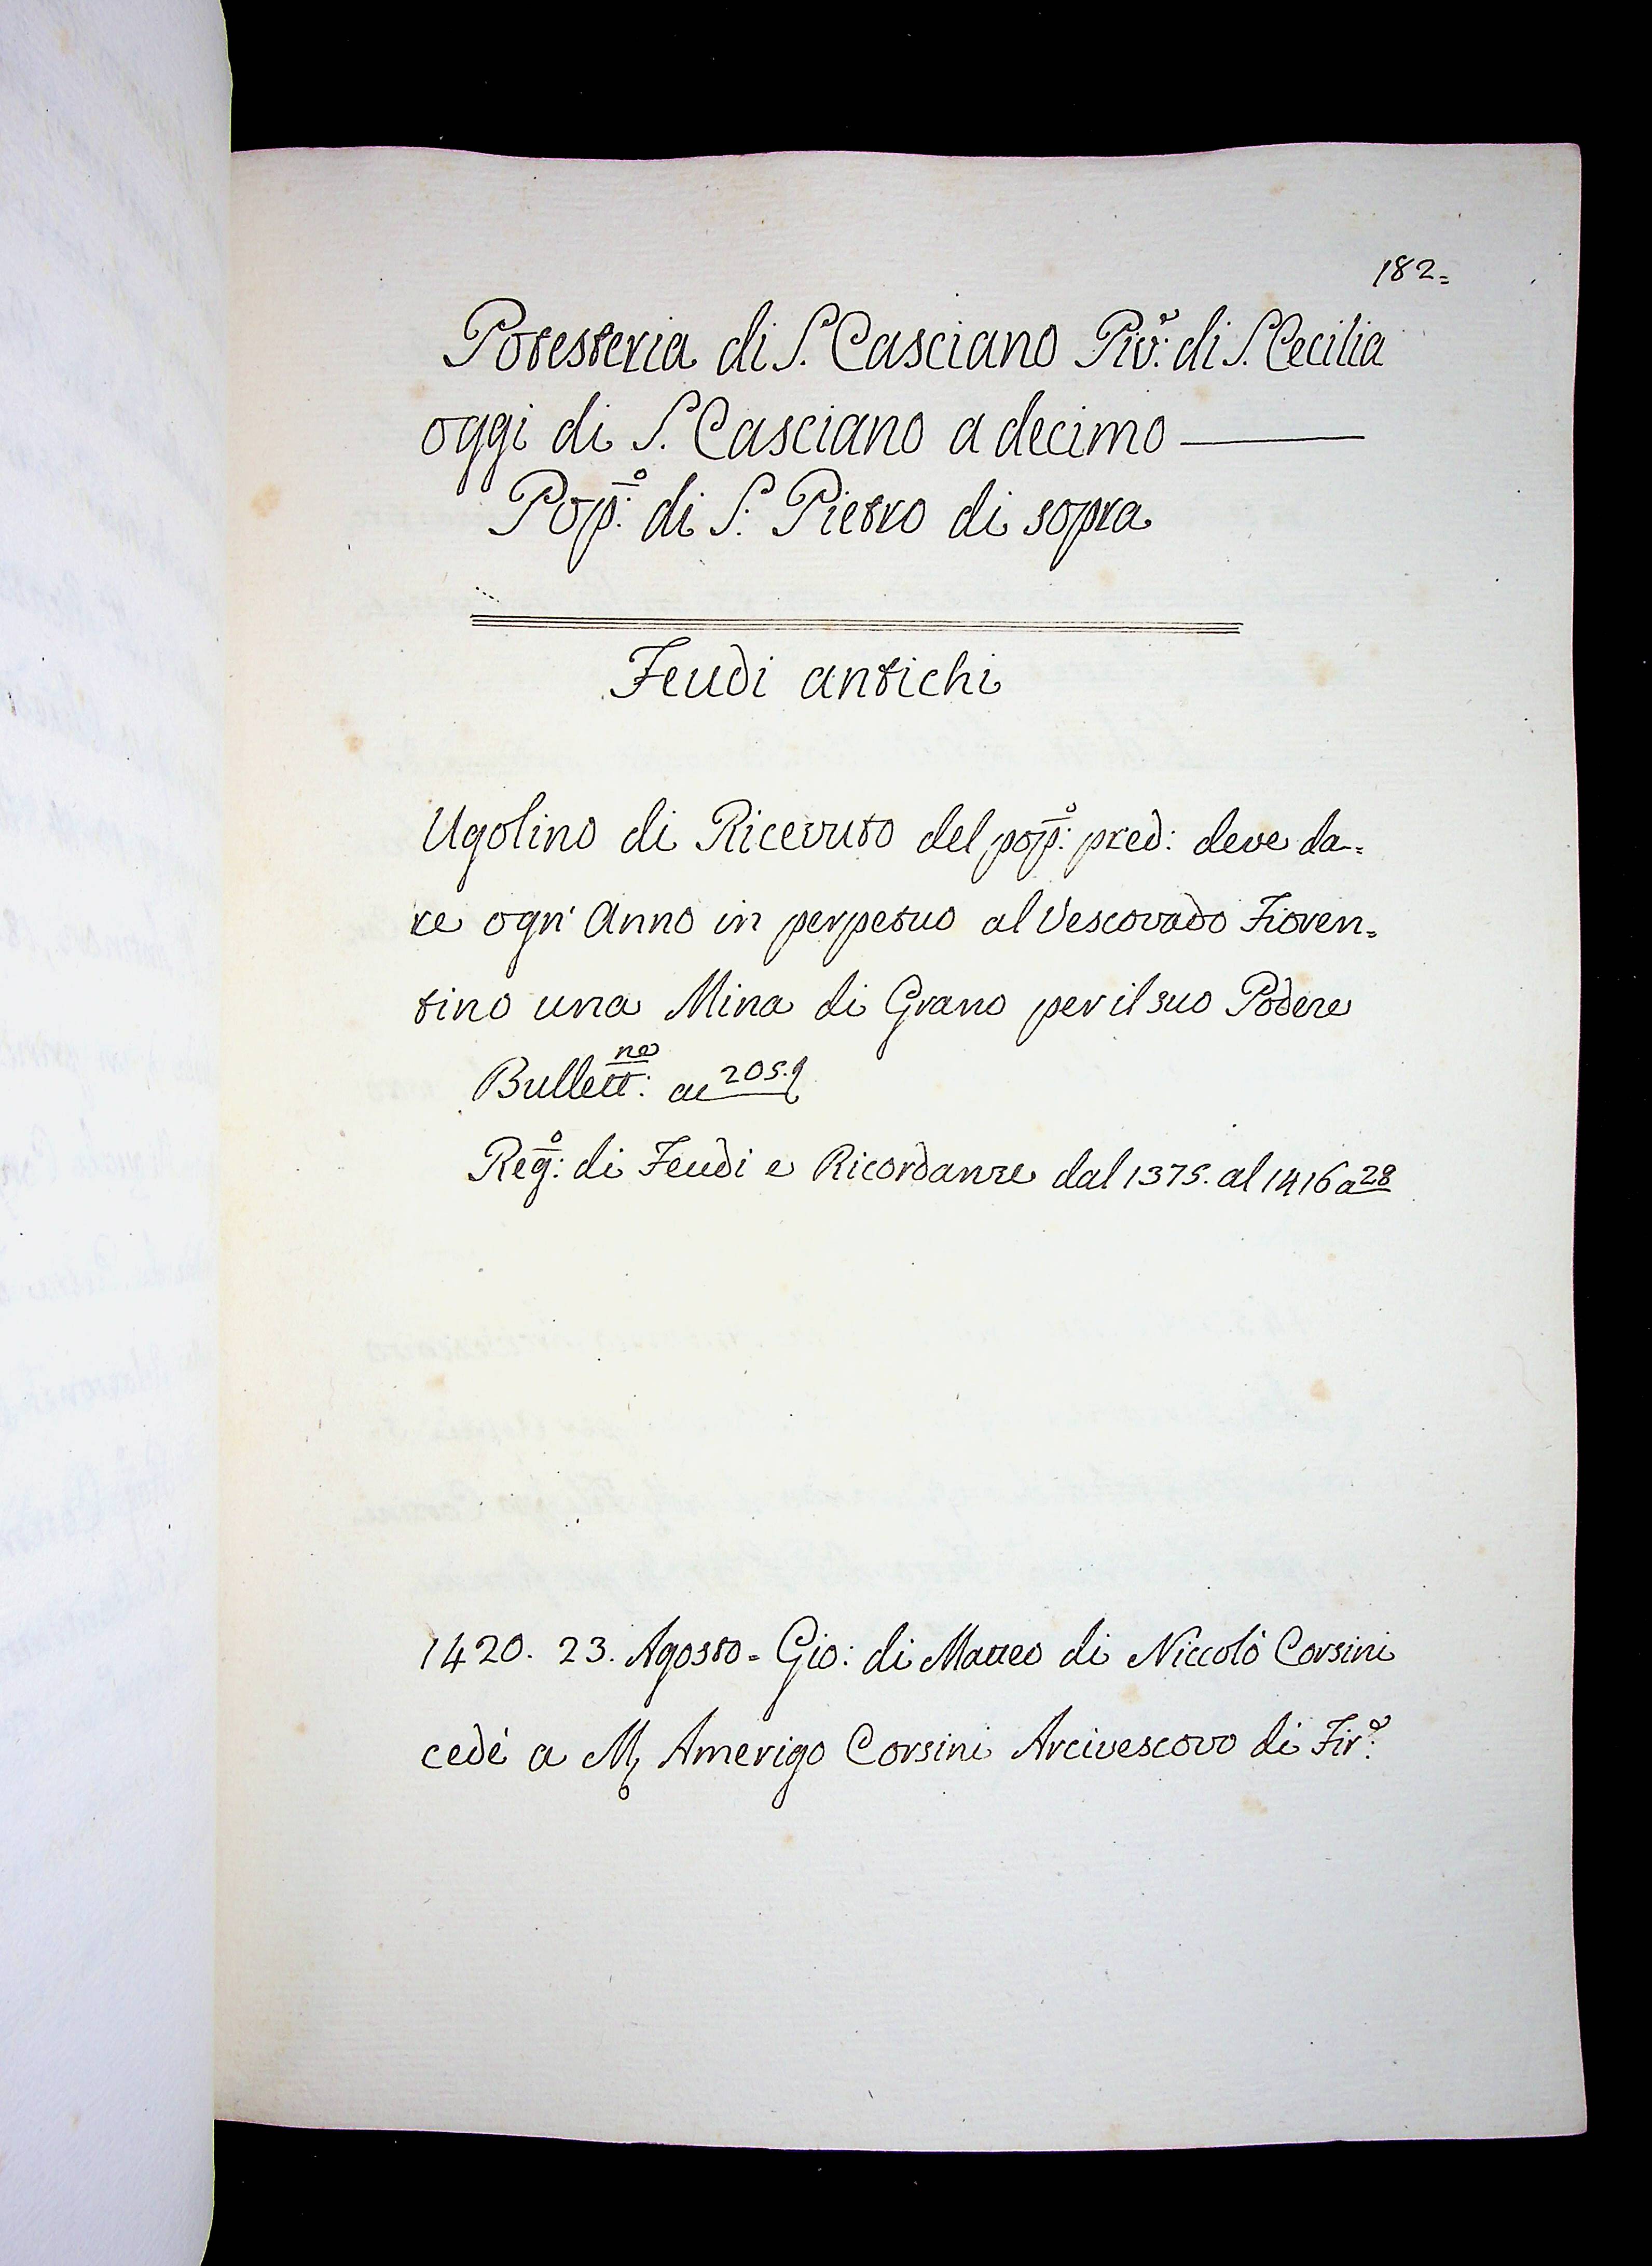 182=
Potesteria di S. Casciano Piv.e di S. Cecilia
oggi di S. Casciano a decimo
Pop:o di S. Pietro di sopra
Feudi antichi
Ugolino di Ricevuto del pop:o pred: deve da=
re ogn' Anno in perpetuo al Vescovado Fioren=
tino una Mina di Grano per il suo Podere
Bullett:ne a 205.
Reg:o di Feudi e Ricordanze dal 1375. al 1416 a 28
1420. 23. Agosto = Gio: di Matteo di Niccolò Corsini
cedè a M. Amerigo Corsini Arcivescovo di Fir:e